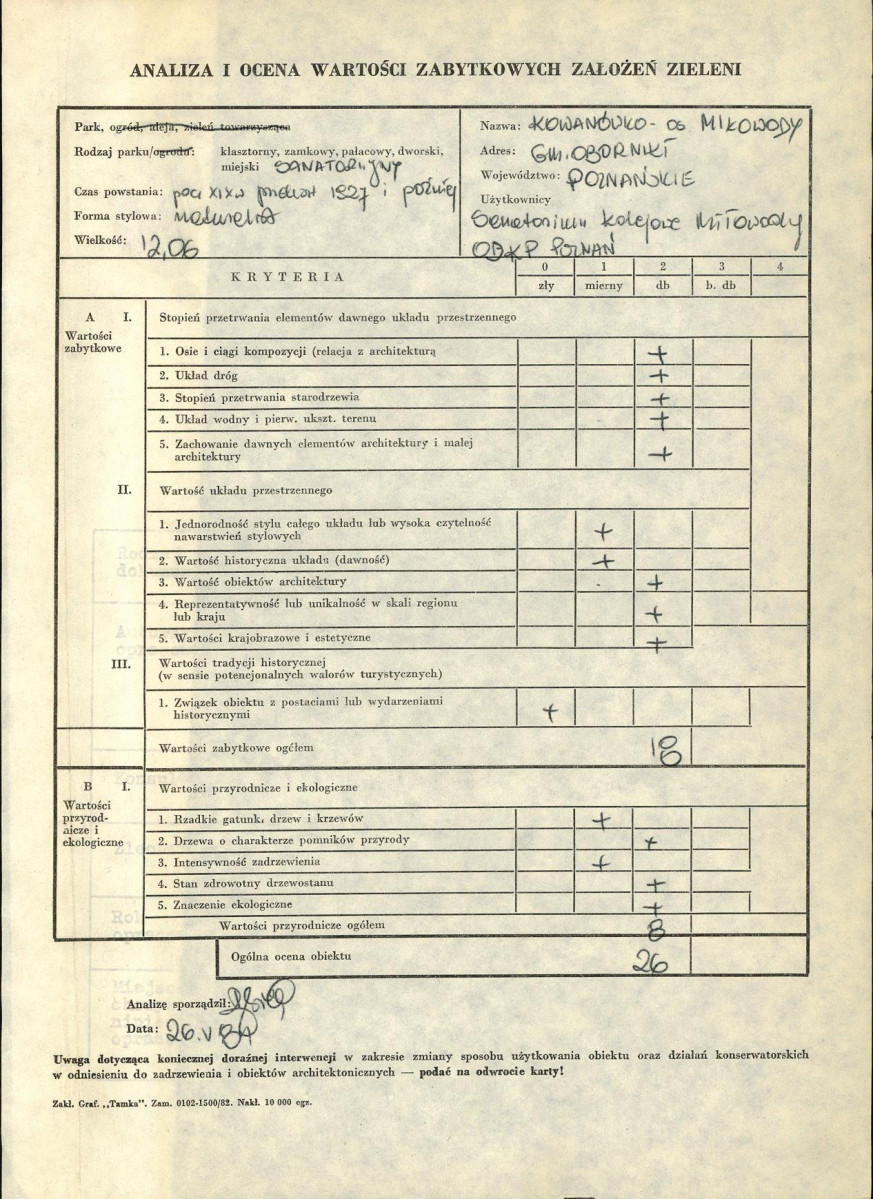 ANALIZA I OCENA WARTOŚCI ZABYTKOWYCH ZAŁOŻEŃ ZIELENI
Park, ogród, aleja, zieleń towarzysząca
Rodzaj parku/ogrodu: klasztorny, zamkowy, pałacowy, dworski,
miejski SANATORYJNY
Czas powstania: pocz XIXw 1927 i później
Forma stylowa: naturalna
Wielkość: 12,06
Nazwa: KOWANÓWKO - os MIŁOWODY
Adres: GM. OBORNIKI
Województwo: POZNAŃSKIE
Użytkownicy
Sanatorium kolejowe Miłowody
POZNAŃ
KRYTERIA
0 1 2 3 4
zły mierny db b. db
A I. Stopień przetrwania elementów dawnego układu przestrzennego
Wartości
zabytkowe
1. Osie i ciągi kompozycji (relacja z architekturą +
2. Układ dróg +
3. Stopień przetrwania starodrzewia +
4. Układ wodny i pierw. ukszt. terenu +
5. Zachowanie dawnych elementów architektury i małej
architektury +
II. Wartość układu przestrzennego
1. Jednorodność stylu całego układu lub wysoka czytelność
nawarstwień stylowych +
2. Wartość historyczna układu (dawność) +
3. Wartość obiektów architektury +
4. Reprezentatywność lub unikalność w skali regionu
lub kraju +
5. Wartości krajobrazowe i estetyczne +
III. Wartości tradycji historycznej
(w sensie potencjonalnych walorów turystycznych)
1. Związek obiektu z postaciami lub wydarzeniami
historycznymi +
Wartości zabytkowe ogółem 18
B I. Wartości przyrodnicze i ekologiczne
Wartości
przyrod-
nicze i
ekologiczne
1. Rzadkie gatunki drzew i krzewów +
2. Drzewa o charakterze pomników przyrody +
3. Intensywność zadrzewienia +
4. Stan zdrowotny drzewostanu +
5. Znaczenie ekologiczne +
Wartości przyrodnicze ogółem 8
Ogólna ocena obiektu 26
Analizę sporządził:
Data: 26.V
Uwaga dotycząca koniecznej doraźnej interwencji w zakresie zmiany sposobu użytkowania obiektu oraz działań konserwatorskich
w odniesieniu do zadrzewienia i obiektów architektonicznych — podać na odwrocie karty!
Zakł. Graf. „Tamka”. Zam. 0102-1500/82. Nakł. 10 000 egz.